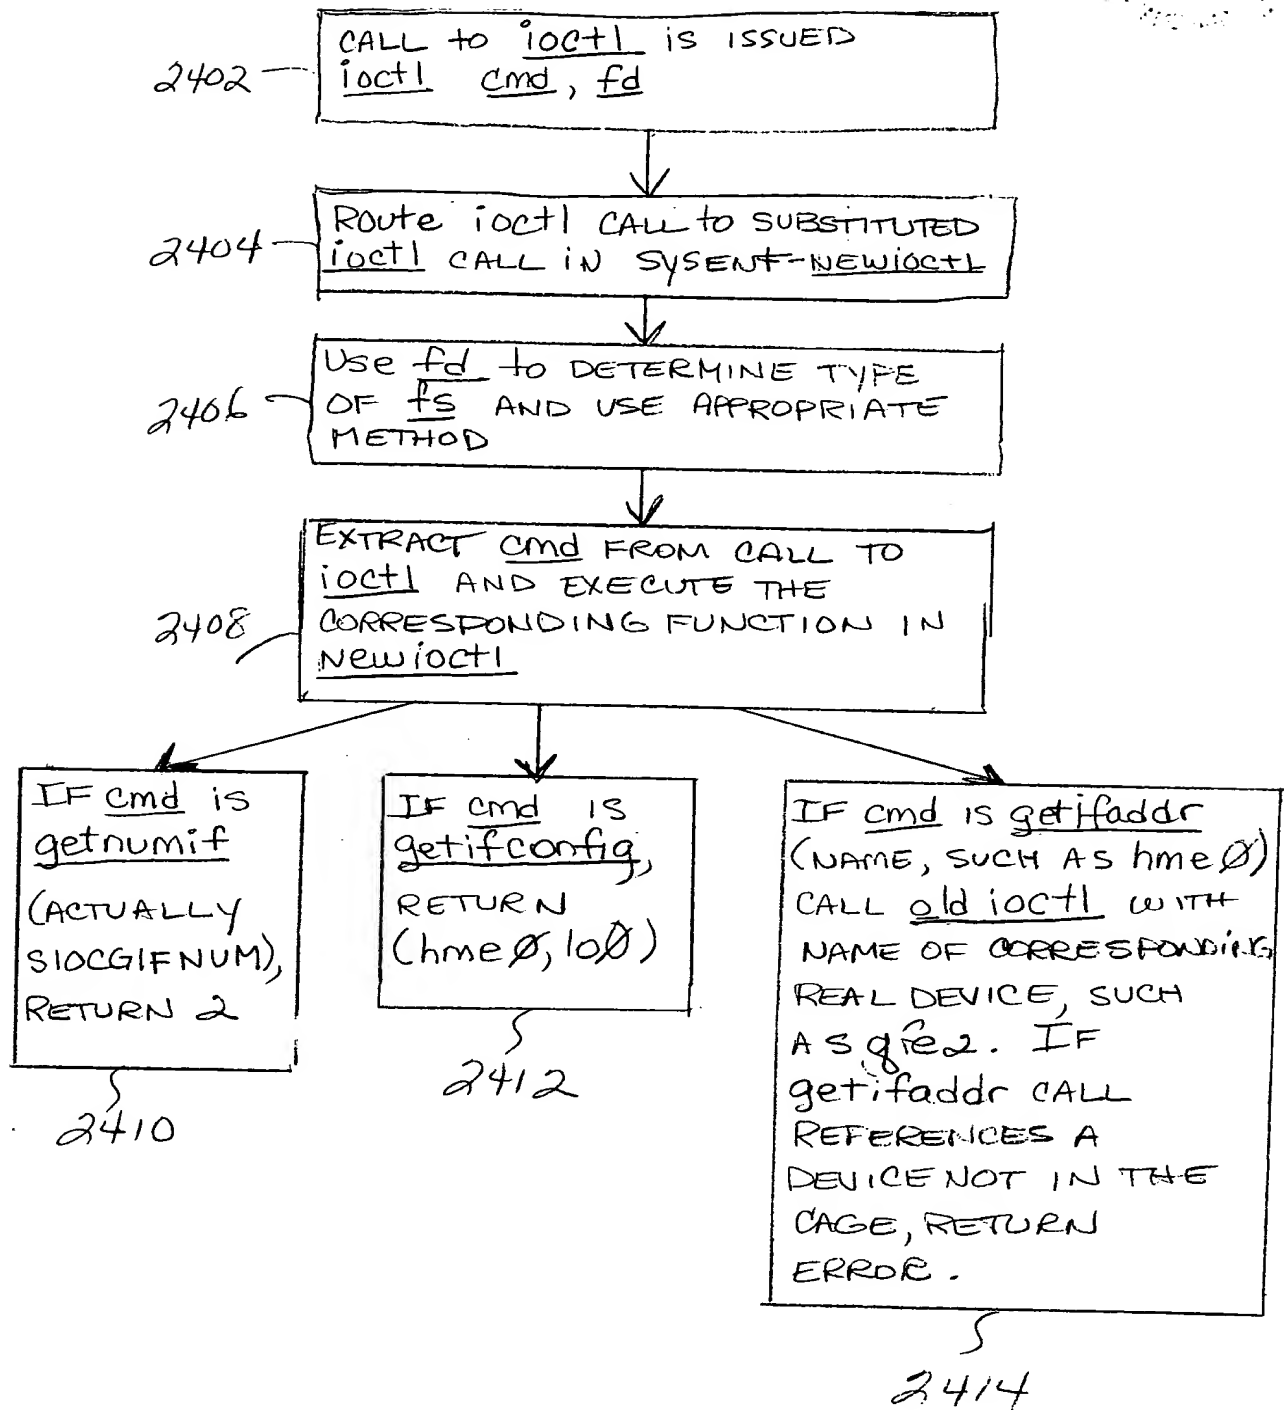 CALL to ioctl is ISSUED
ioctl cmd, fd
2402
Route ioctl CALL to SUBSTITUTED
ioctl CALL IN SYSENT-NEWioctl
2404
Use fd to DETERMINE TYPE
OF fs AND USE APPROPRIATE
METHOD
2406
EXTRACT cmd FROM CALL TO
ioctl AND EXECUTE THE
CORRESPONDING FUNCTION IN
Newioctl
2408
IF cmd is
getnumif
(ACTUALLY
SIOCGIFNUM),
RETURN 2
2410
IF cmd IS
getifconfig,
RETURN
(hme0, lo0)
2412
IF cmd IS getifaddr
(NAME, SUCH AS hme0)
CALL old ioctl WITH
NAME OF CORRESPONDING
REAL DEVICE, SUCH
AS qfe2. IF
getifaddr CALL
REFERENCES A
DEVICE NOT IN THE
CAGE, RETURN
ERROR.
2414